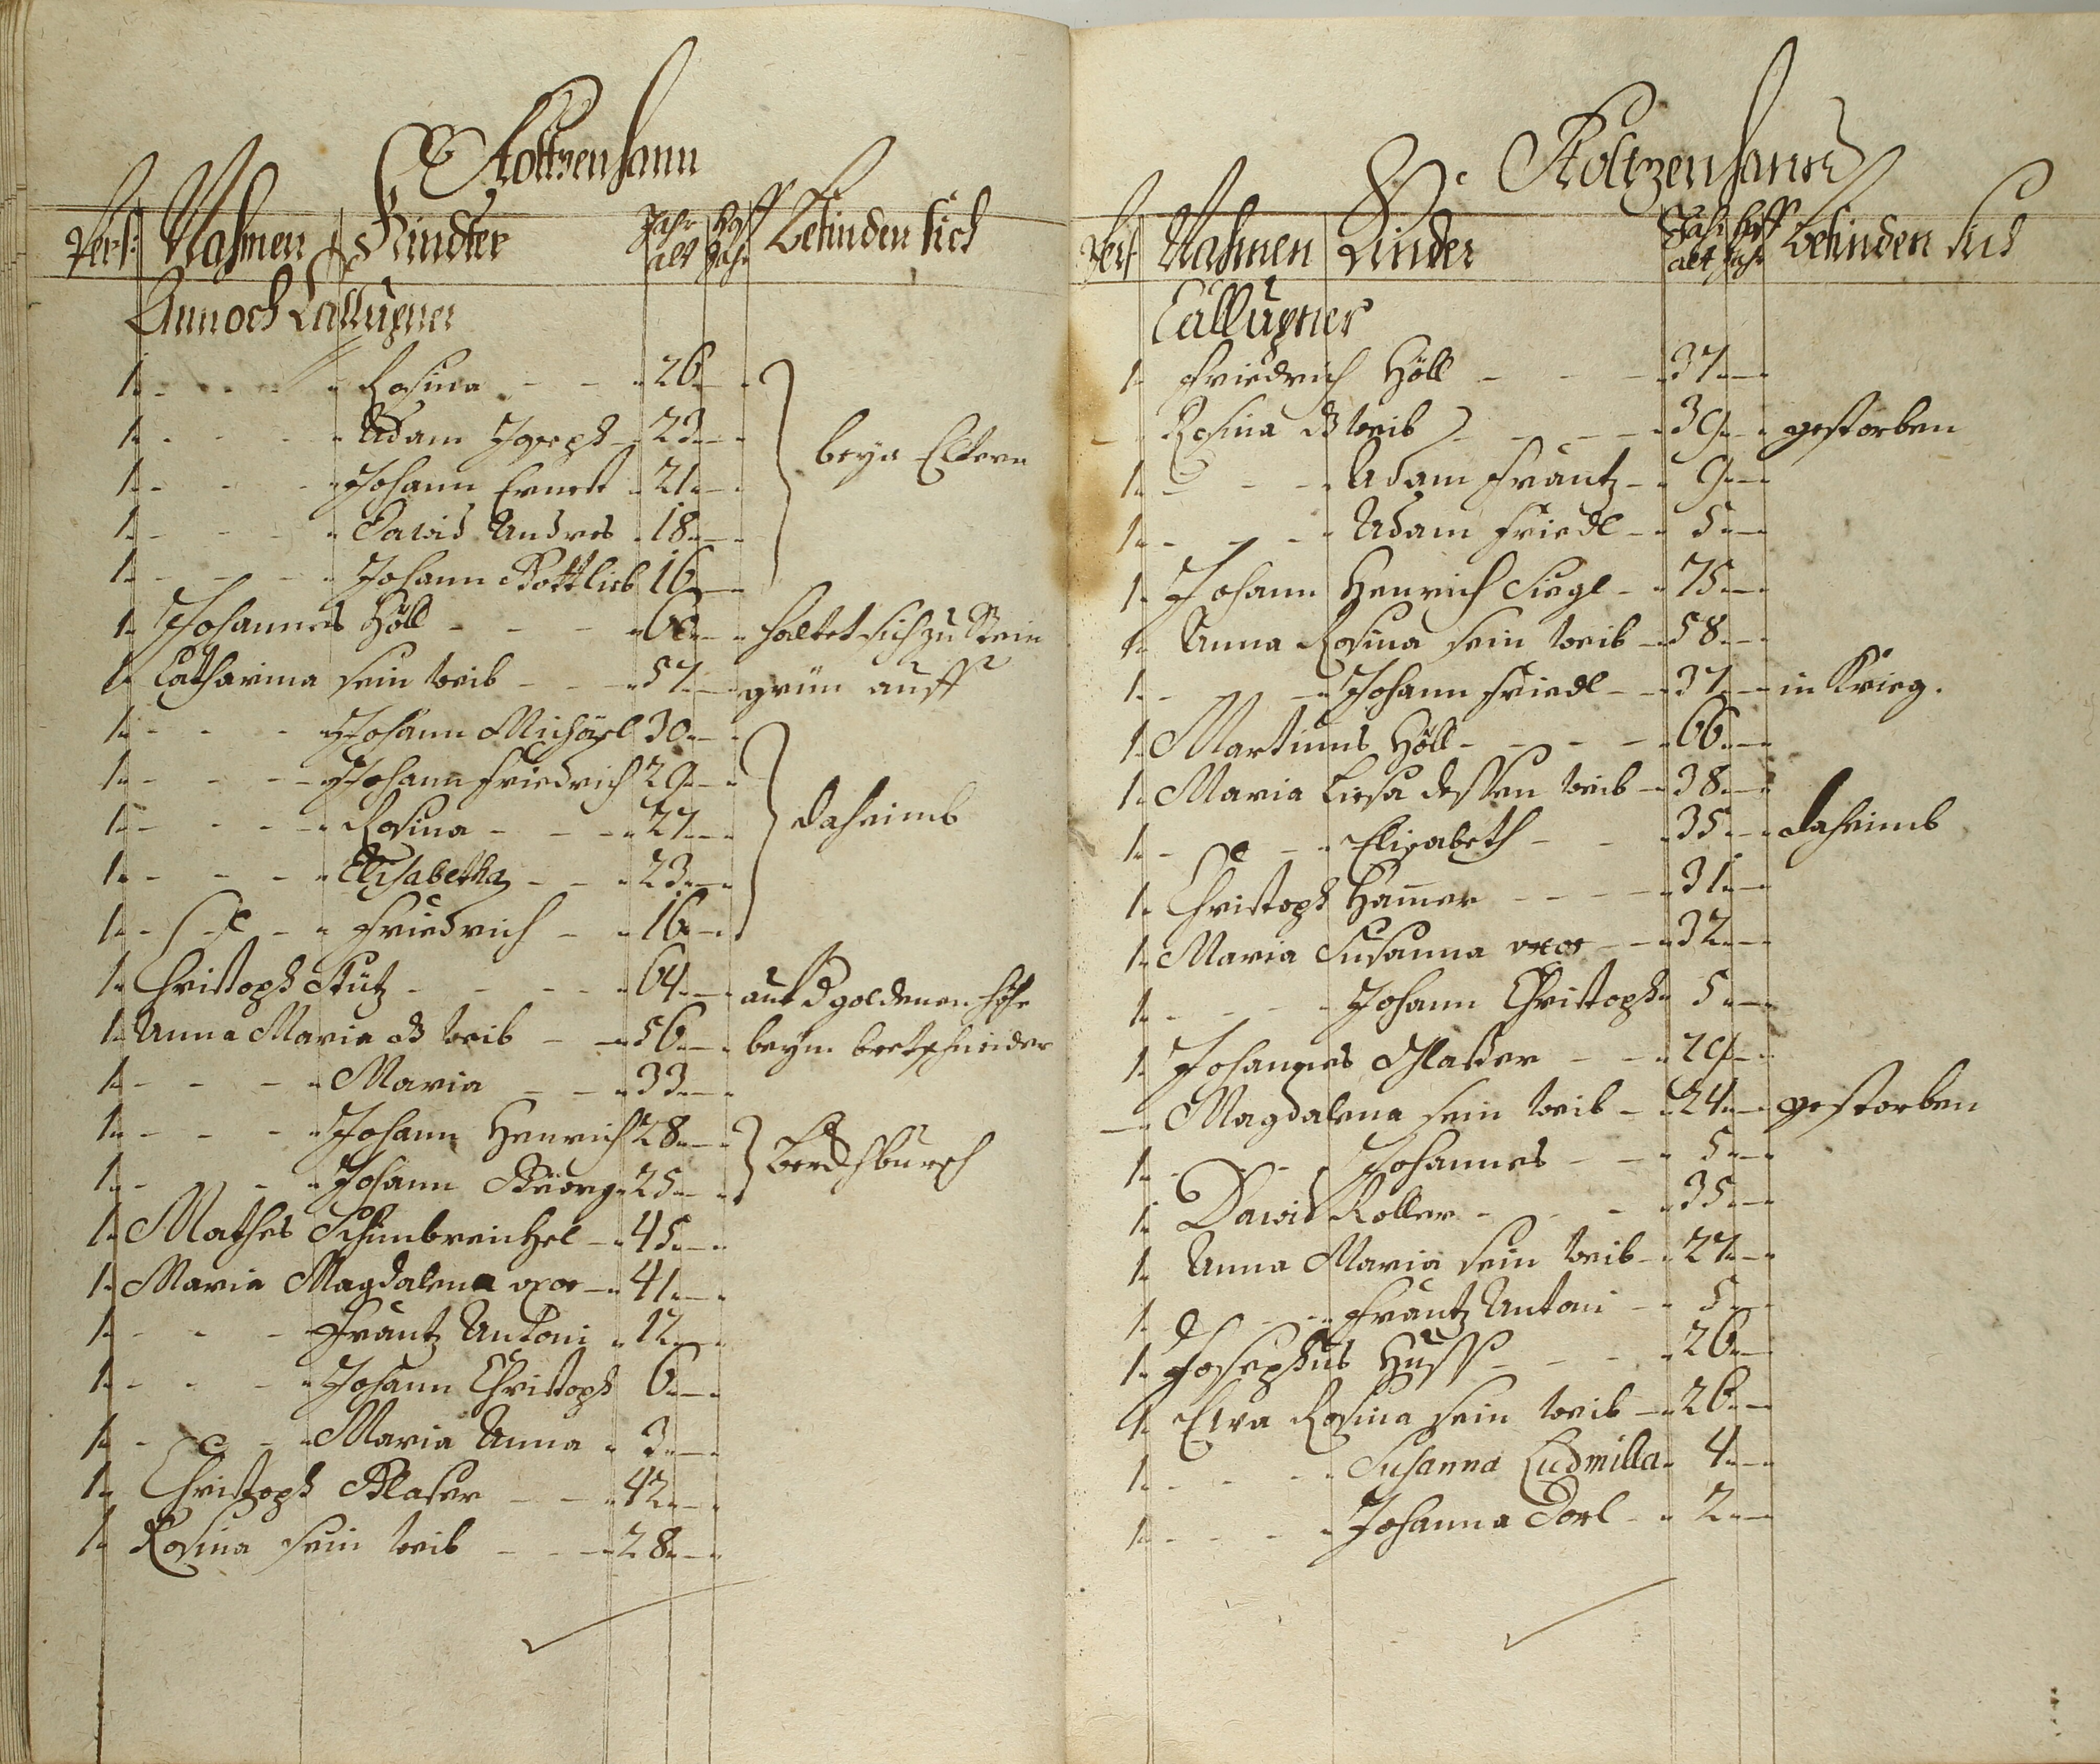 Stoltzenhann
Pers: Nahmen Kindter Jahr alt Hoff Jahr Befinden sich
Annoch Callupner
1 Rosina 26
1 Adam Joseph 23
1 Johann Ernst 21 beyn Eltern
1 David Andres 18
1 Johann Gottlieb 16
1 Johannes Höll 61 haltet sich zu Stein
1 Catharina sein weib 57 grün auff
1 Johann Michäel 30
1 Johann Friedrich 29
1 Rosina 27 daheimb
1 Elisabetha 23
1 Friedrich 16
1 Christoph Stütz 64 auf d goldenen Höhe
1 Anna Maria d weib 56 beym bretschneider
1 Maria 33
1 Johann Henrich 28
1 Johann Georg 25
1 Mathes 45
1 Maria Magdalena uxor 41
1 Frantz Antoni 12
1 Johann Christoph 6
1 Maria Anna 3
1 Christoph Glaser 42
1 Rosina sein weib 28
Stoltzenhann
Pers Nahmen Kinder Jahr alt Hoff Jahr Befinden sich
Callupner
1 Friedrich Höll 37
Rosina d weib 39 gestorben
1 Adam Frantz 9
1 Adam Friedl 5
1 Johann Henrich Siegl 75
1 Anna Rosina sein weib 58
1 Johann Friedl 37 in Krieg.
1 Martinus Höll 66
1 Maria Liesa dessen weib 38
1 Elisabeth 35 daheimb
1 Christoph Ham̄er 31
1 Maria Susanna uxor 32
1 Johann Christoph 5
1 Johannes 29
Magdalena sein weib 24 gestorben
1 Johannes 5
1 David Koller 35
1 Anna Maria sein weib 27
1 Frantz Antoni 5
1 Josephus Huss 26
1 Eva Rosina sein weib 26
1 Susanna Ludmilla 4
1 Johanna Dorl 2